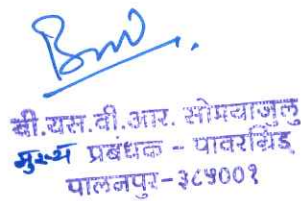 बी.यस.वी.आर. सोमयाजुलु
मुख्य प्रबंधक - पावरग्रिड
पालनपुर-३८५००१